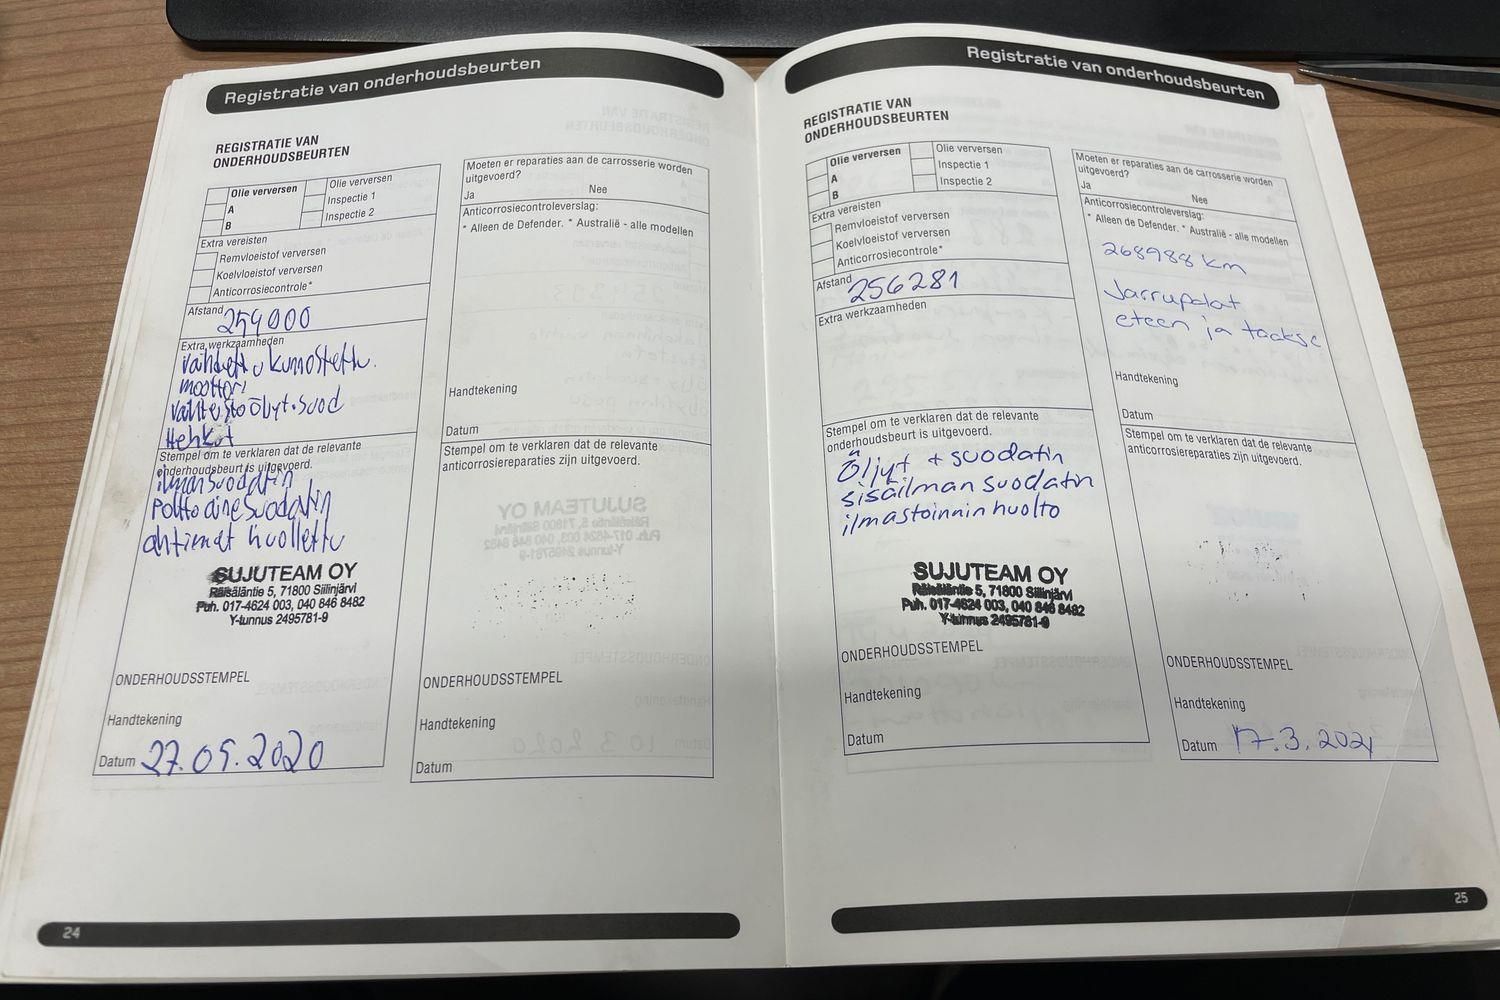 Registratie van onderhoudsbeurten
REGISTRATIE VAN
ONDERHOUDSBEURTEN
Olie verversen
A
B
Olie verversen
Inspectie 1
Inspectie 2
Extra vereisten
Remvloeistof verversen
Koelvloeistof verversen
Anticorrosiecontrole*
Afstand 254000
Extra werkzaamheden
vaihdettu kunnostettu
moottori
vaihteistoöljyt+suod
Hehkut
Stempel om te verklaren dat de relevante
onderhoudsbeurt is uitgevoerd.
ilmansuodatin
Polttoainesuodatin
ahtimet huollettu
SUJUTEAM OY
Räisäläntie 5, 71800 Siilinjärvi
Puh. 017-4624 003, 040 846 8482
Y-tunnus 2495781-9
ONDERHOUDSSTEMPEL
Handtekening
Datum 27.05.2020
Moeten er reparaties aan de carrosserie worden
uitgevoerd?
Ja Nee
Anticorrosiecontroleverslag:
* Alleen de Defender. * Australië - alle modellen
Handtekening
Datum
Stempel om te verklaren dat de relevante
anticorrosiereparaties zijn uitgevoerd.
ONDERHOUDSSTEMPEL
Handtekening
Datum
24
Registratie van onderhoudsbeurten
REGISTRATIE VAN
ONDERHOUDSBEURTEN
Olie verversen
A
B
Olie verversen
Inspectie 1
Inspectie 2
Extra vereisten
Remvloeistof verversen
Koelvloeistof verversen
Anticorrosiecontrole*
Afstand 256281
Extra werkzaamheden
Stempel om te verklaren dat de relevante
onderhoudsbeurt is uitgevoerd.
Öljyt + suodatin
sisäilman suodatin
ilmastoinnin huolto
SUJUTEAM OY
Räisäläntie 5, 71800 Siilinjärvi
Puh. 017-4624 003, 040 846 8482
Y-tunnus 2495781-9
ONDERHOUDSSTEMPEL
Handtekening
Datum
Moeten er reparaties aan de carrosserie worden
uitgevoerd?
Ja Nee
Anticorrosiecontroleverslag:
* Alleen de Defender. * Australië - alle modellen
268988 km
Jarrupalat
eteen ja taakse
Handtekening
Datum
Stempel om te verklaren dat de relevante
anticorrosiereparaties zijn uitgevoerd.
ONDERHOUDSSTEMPEL
Handtekening
Datum 17.3.2021
25